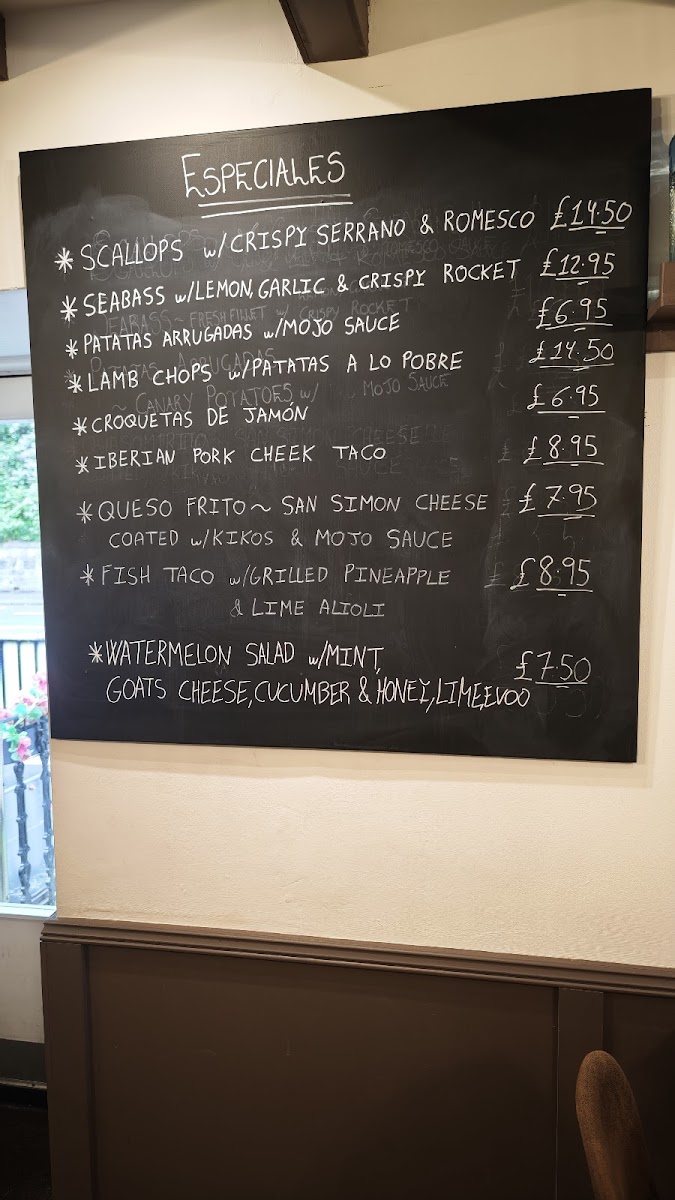 ESPECIALES
* SCALLOPS w/CRISPY SERRANO & ROMESCO £14.50
* SEABASS w/LEMON, GARLIC & CRISPY ROCKET £12.95
* PATATAS ARRUGADAS w/MOJO SAUCE £6.95
* LAMB CHOPS w/PATATAS A LO POBRE £14.50
* CROQUETAS DE JAMÓN £6.95
* IBERIAN PORK CHEEK TACO £8.95
* QUESO FRITO ~ SAN SIMON CHEESE £7.95
COATED w/KIKOS & MOJO SAUCE
* FISH TACO w/GRILLED PINEAPPLE £8.95
& LIME ALIOLI
* WATERMELON SALAD w/MINT, £7.50
GOATS CHEESE, CUCUMBER & HONEY, LIME, EVOO